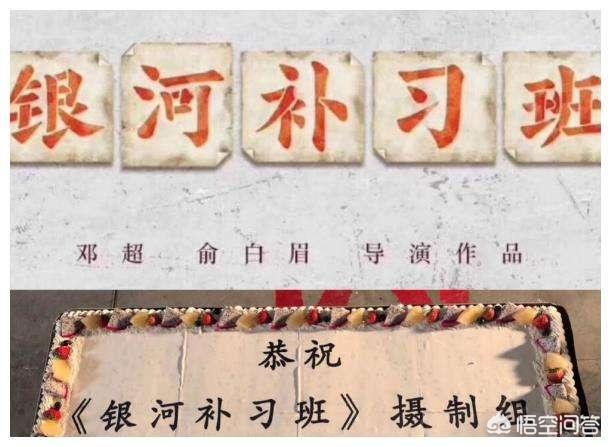 银河补习班
邓超 俞白眉 导演作品
恭祝
《银河补习班》摄制组
悟空问答